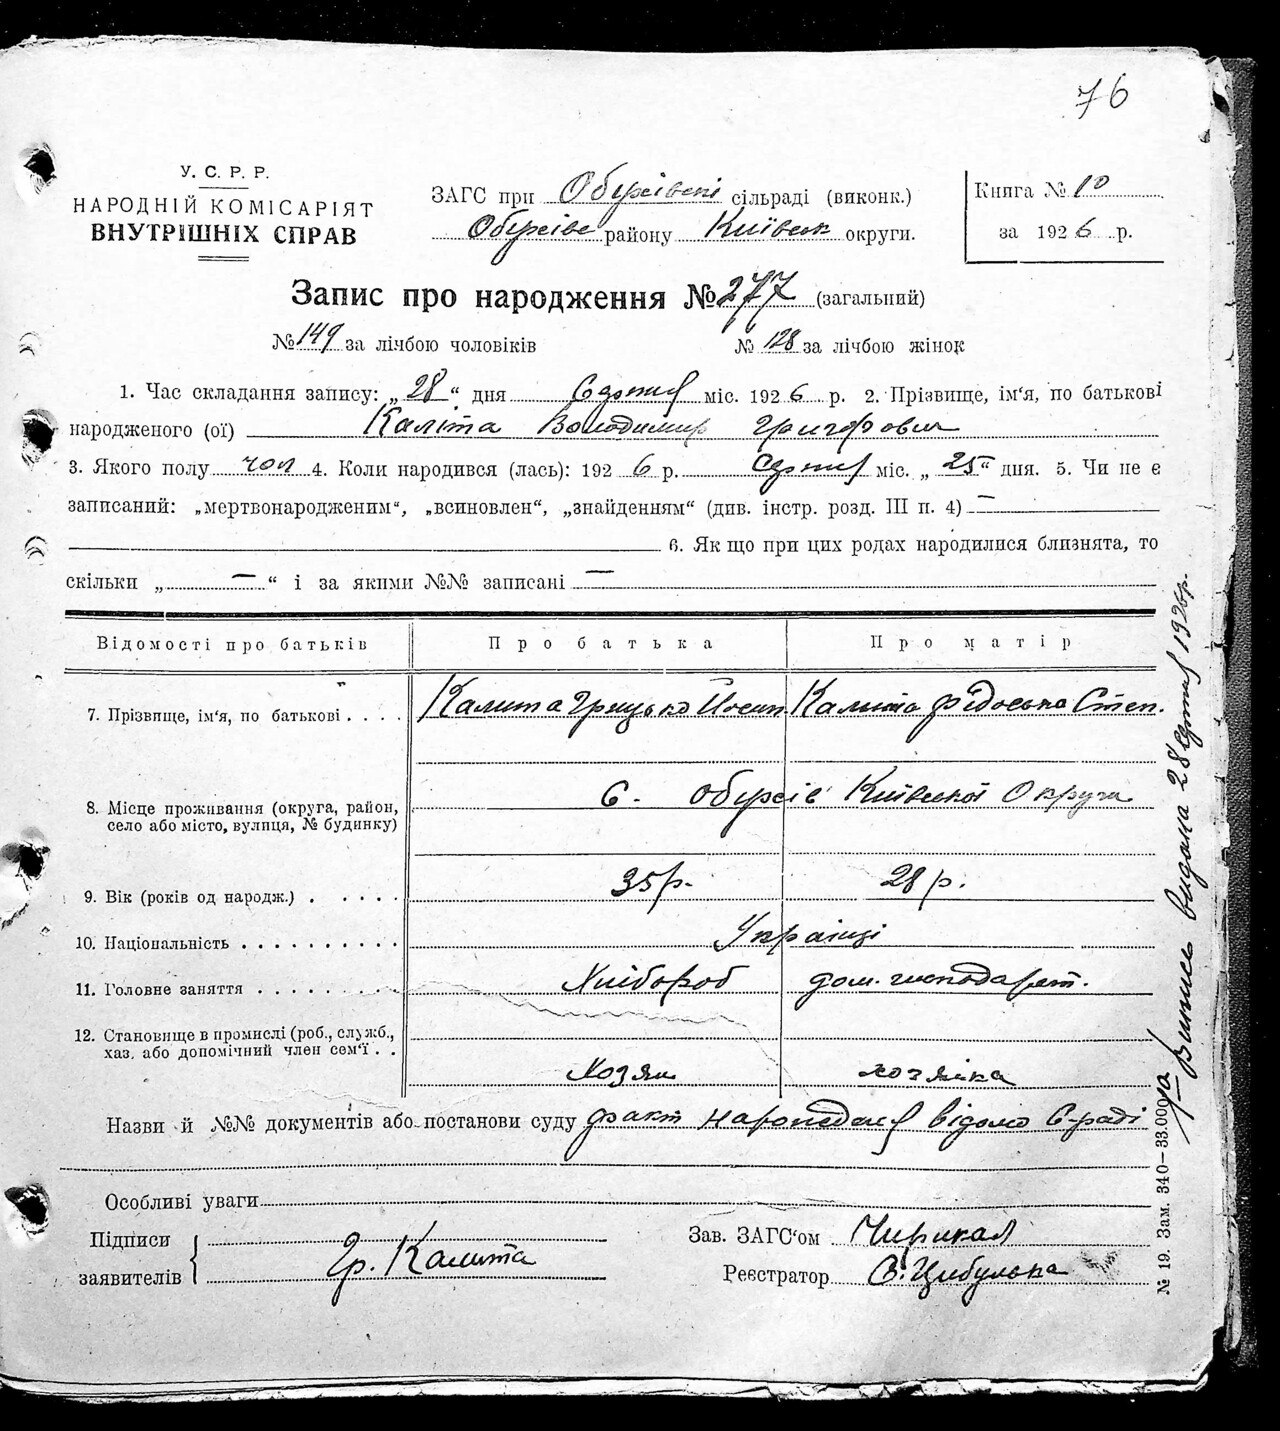 76
У. С. Р. Р.
НАРОДНІЙ КОМІСАРІЯТ
ВНУТРІШНІХ СПРАВ
ЗАГС при Обухівскі сільраді (виконк.)
Обухівс району Київськ округи.
Книга № 10
за 1926 р.
Запис про народження № 277 (загальний)
№ 149 за лічбою чоловіків № 128 за лічбою жінок
1. Час складання запису: „28“ дня Серпня міс. 1926 р. 2. Прізвище, ім'я, по батькові
народженого (ої) Каліта Володимир Григорович
3. Якого полу чол 4. Коли народився (лась): 1926 р. Серпня міс. „25“ дня. 5. Чи не є
записаний: „мертвонародженим“, „всиновлен“, „знайденням“ (див. інстр. розд. III п. 4) —
6. Як що при цих родах народилися близнята, то
скільки „ — “ і за якими №№ записані —
Відомості про батьків Про батька Про матір
7. Прізвище, ім'я, по батькові . . . . Калита Грицько Йосип. Калита Фідоська Степ.
8. Місце проживання (округа, район,
село або місто, вулиця, № будинку) С. Обухів Київської Округи
9. Вік (років од народж.) . . . . . 35 р. 28 р.
10. Національність . . . . . . . . . . Українці
11. Головне заняття . . . . . . . . . Хлібороб дом. господарст.
12. Становище в промислі (роб., служб.,
хаз. або допомічний член сем'ї . . Хозяін хозяйка
Назви й №№ документів або постанови суду факт народження відомо С-раді
Особливі уваги
Підписи
заявителів Гр. Калита
Зав. ЗАГС'ом
Реєстратор В. Цибулька
№ 19. Зам. 340—33.000
Випись видана 28 Серпня 1926 р.